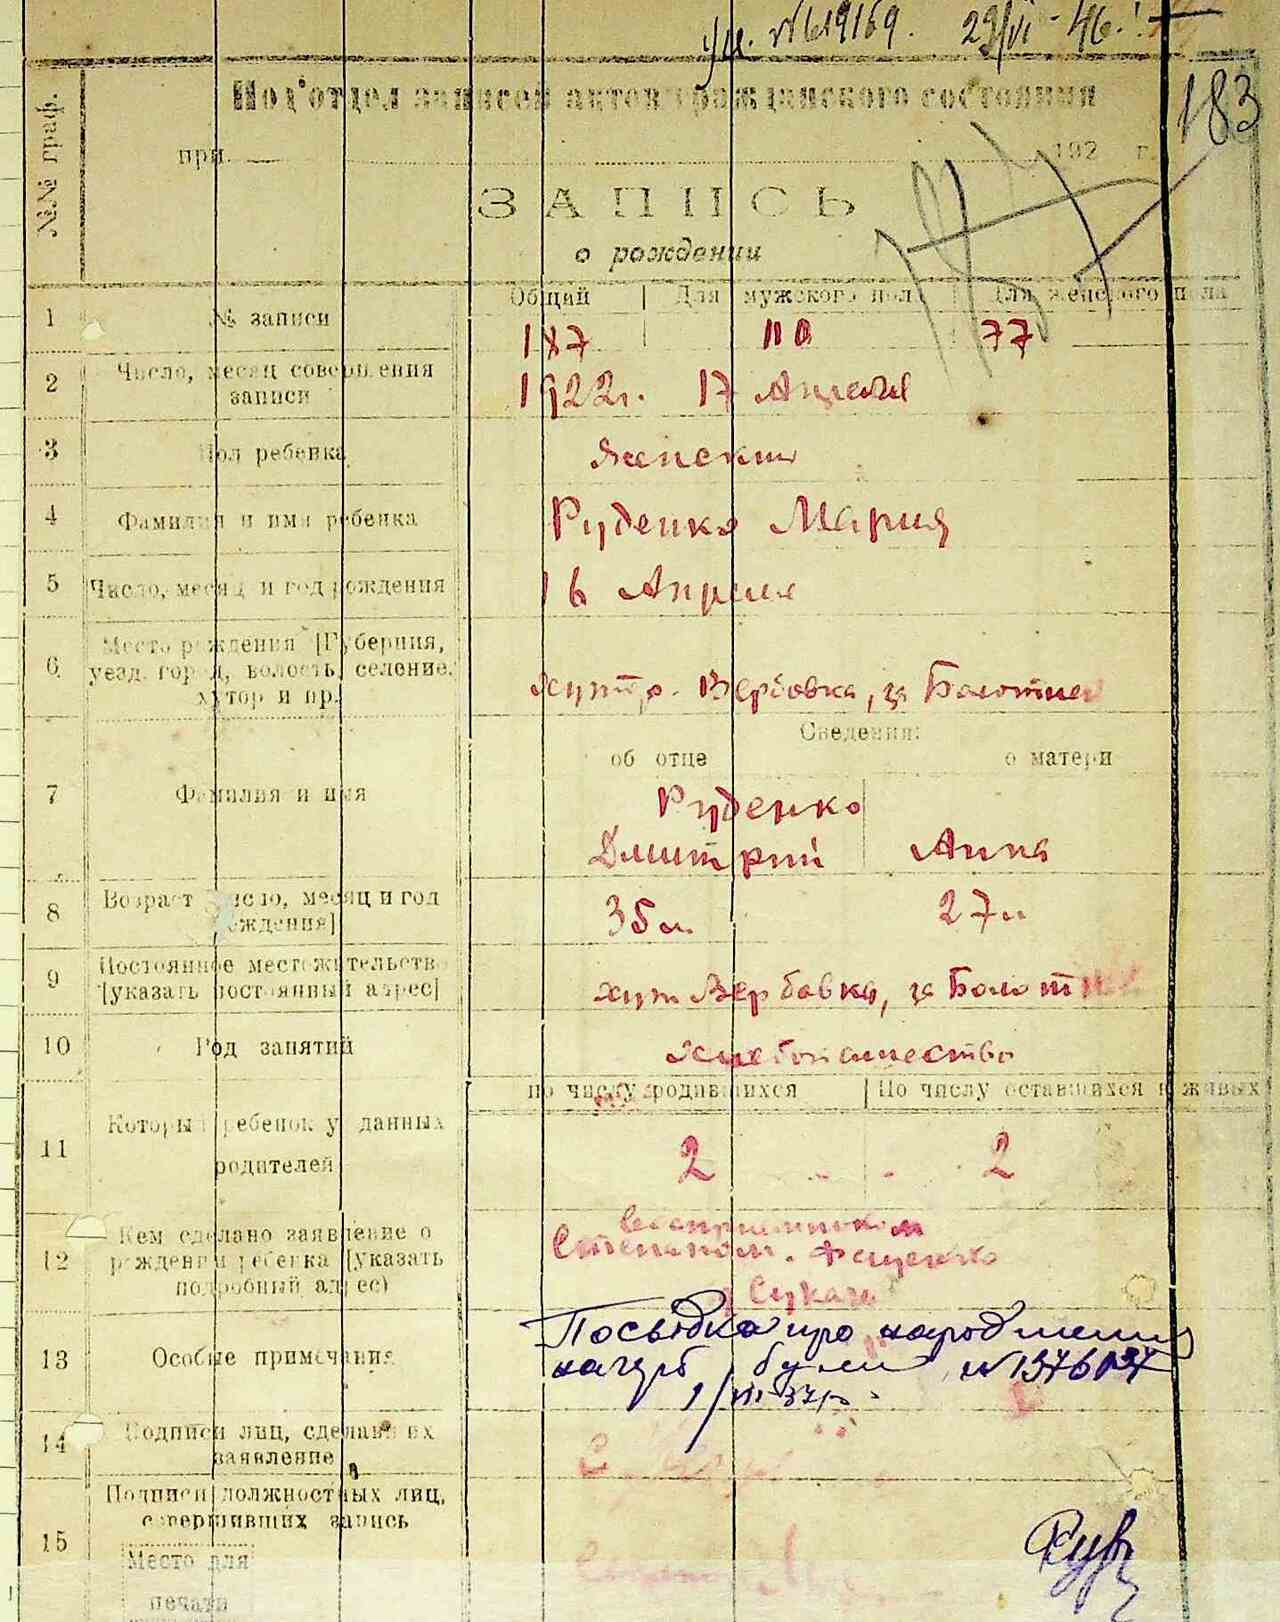 №619169. 29/VI - 46.
183
№№ граф.
Под'отдел записей актов гражданского состояния
при 192 г.
ЗАПИСЬ
о рождении
Общий Для мужского пола Для женского пола
1 № записи 187 110 77
2 Число, месяц совершения записи 1922г. 17 Апреля
3 Пол ребенка Женский
4 Фамилия и имя ребенка Руденко Мария
5 Число, месяц и год рождения 16 Апреля
6 Место рождения [Губерния,
уезд, город, волость, селение,
хутор и пр. Хутор. Вербовка, за Болотне
Сведения:
об отце о матери
7 Фамилия и имя Руденко
Дмитрий Анна
8 Возраст [число, месяц и год
рождения] 35 л. 27 л
9 Постоянное местожительство
[указать постоянный адрес] хут Вербовка, за Болот
10 Род занятий Хлебопашество
по числу родившихся По числу оставшихся в живых
11 Который ребенок у данных
родителей 2 2
12 Кем сделано заявление о
рождении ребенка [указать
подробный адрес) Восприемником
Степаном Фащенко
13 Особые примечания Посвідка про народження
на гурб бум №1376137
1/VII-37р.
14 Подписи лиц, сделавших
заявление
15 Подписи должностных лиц,
совершивших запись
Место для
печати